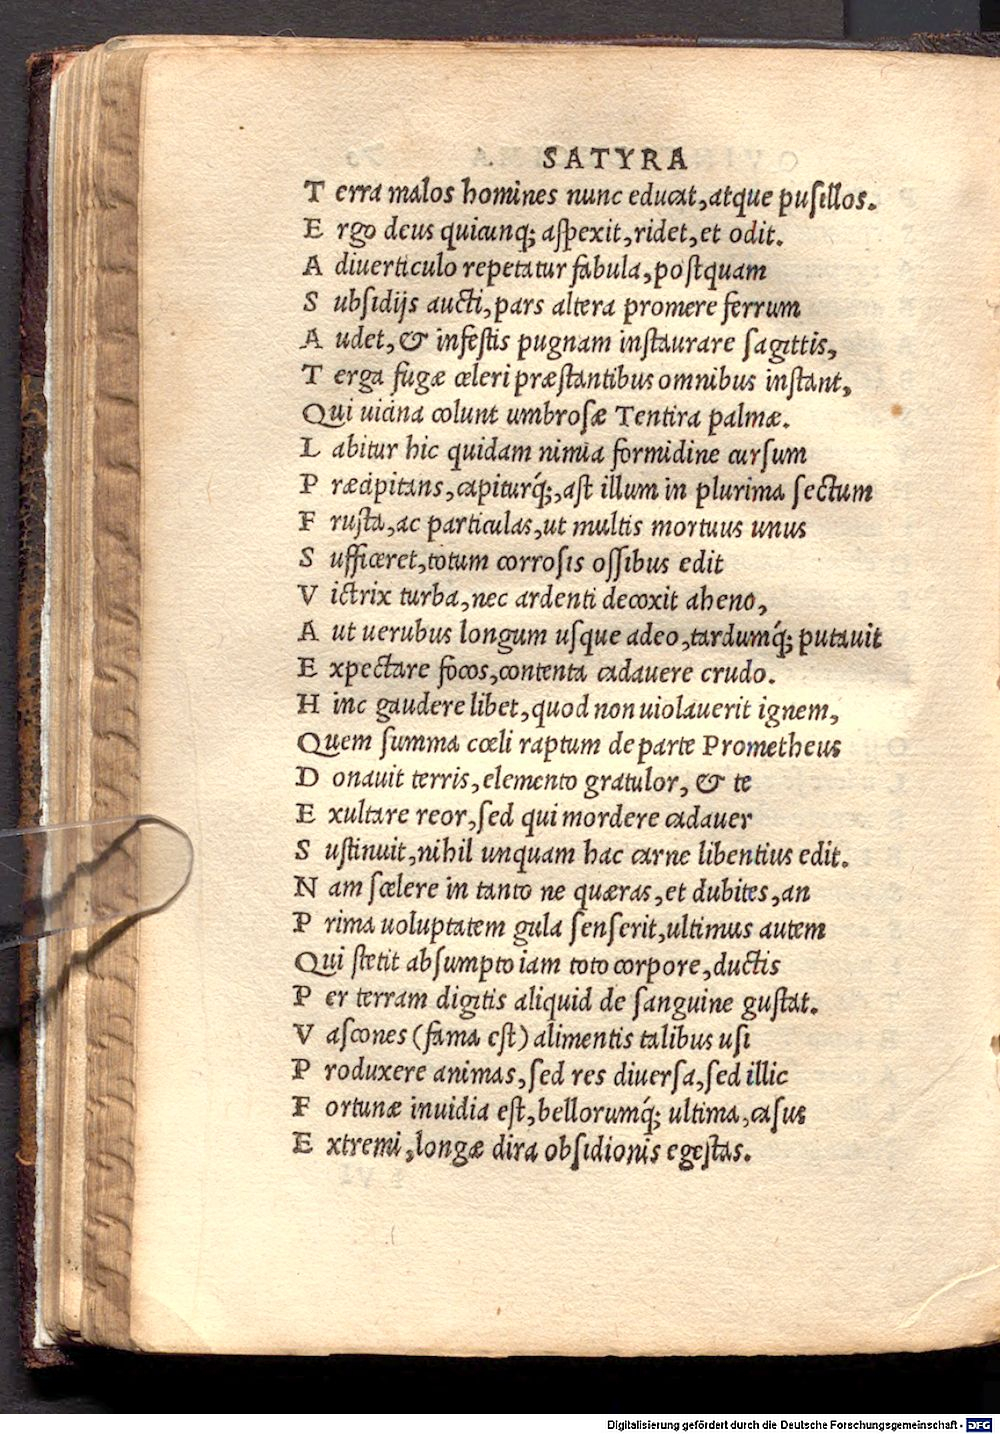 SATYRA
T erra malos homines nunc educat, atque pusillos.
E rgo deus quicunq; aspexit, ridet, et odit.
A diuerticulo repetatur fabula, postquam
S ubsidijs aucti, pars altera promere ferrum
A udet, & infestis pugnam instaurare sagittis,
T erga fugæ celeri præstantibus omnibus instant,
Qui uicina colunt umbrosæ Tentira palmæ.
L abitur hic quidam nimia formidine cursum
P ræcipitans, capiturq́;, ast illum in plurima sectum
F rusta, ac particulas, ut multis mortuus unus
S ufficeret, totum corrosis ossibus edit
V ictrix turba, nec ardenti decoxit aheno,
A ut uerubus longum usque adeo, tardumq́; putauit
E xpectare focos, contenta cadauere crudo.
H inc gaudere libet, quod non uiolauerit ignem,
Quem summa cœli raptum de parte Prometheus
D onauit terris, elemento gratulor, & te
E xultare reor, sed qui mordere cadauer
S ustinuit, nihil unquam hac carne libentius edit.
N am scelere in tanto ne quæras, et dubites, an
P rima uoluptatem gula senserit, ultimus autem
Qui stetit absumpto iam toto corpore, ductis
P er terram digitis aliquid de sanguine gustat.
V ascones (fama est) alimentis talibus usi
P roduxere animas, sed res diuersa, sed illic
F ortunæ inuidia est, bellorumq́; ultima, casus
E xtremi, longæ dira obsidionis egestas.
Digitalisierung gefördert durch die Deutsche Forschungsgemeinschaft - DFG